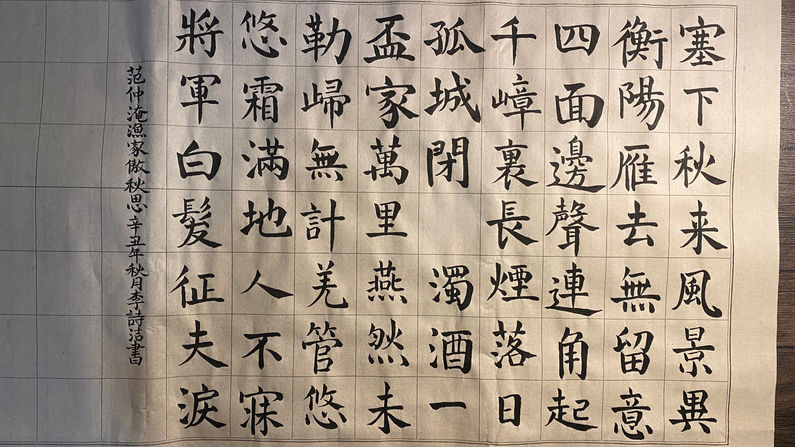 塞下秋来風景異
衡陽雁去無留意
四面邊聲連角起
千嶂裏長煙落日
孤城閉 濁酒一
盃家萬里燕然未
勒歸無計羌管悠
悠霜滿地人不寐
將軍白髮征夫淚
范仲淹漁家傲秋思 辛丑年秋月李詩洁書